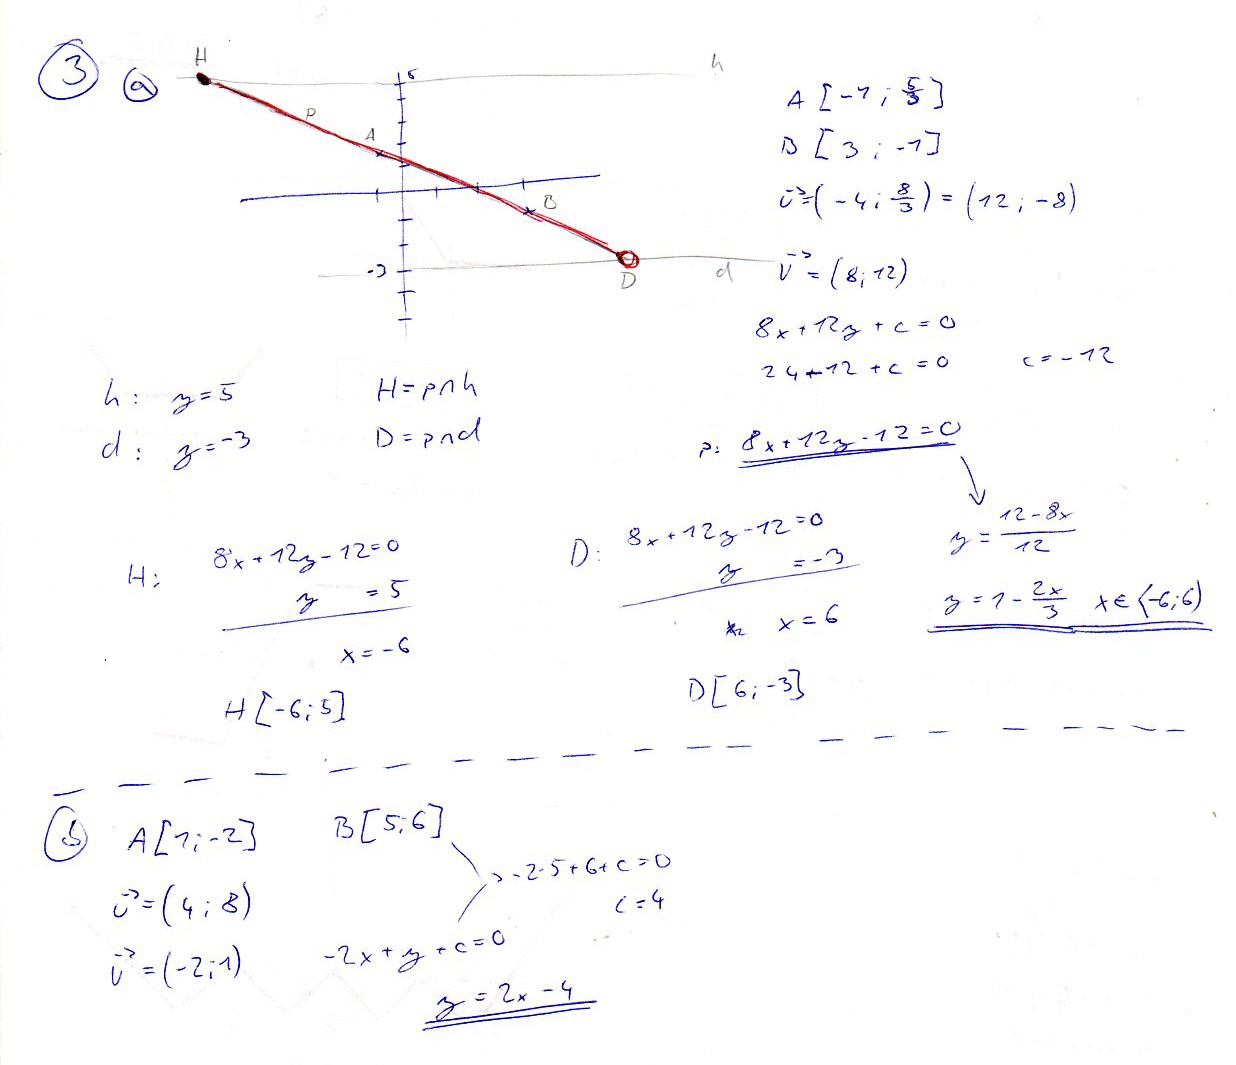 3 a
H
5
h
P
A
B
-3
d
D
A [-1 ; 5/3]
B [3 ; -1]
u⃗=(-4 ; 8/3) = (12 ; -8)
v⃗ = (8 ; 12)
8x + 12y + c = 0
24 - 12 + c = 0 c = -12
p: 8x + 12y - 12 = 0
h : y = 5 H = p∩h
d : y = -3 D = p∩d
y = (12 - 8x)/12
y = 1 - 2x/3 x ∈ ⟨-6;6)
H: 8x + 12y - 12 = 0
y = 5
x = -6
H [-6 ; 5]
D: 8x + 12y - 12 = 0
y = -3
x = 6
D [6 ; -3]
b A [1 ; -2] B [5 ; 6]
u⃗ = (4 ; 8)
v⃗ = (-2 ; 1)
-2·5 + 6 + c = 0
c = 4
-2x + y + c = 0
y = 2x - 4